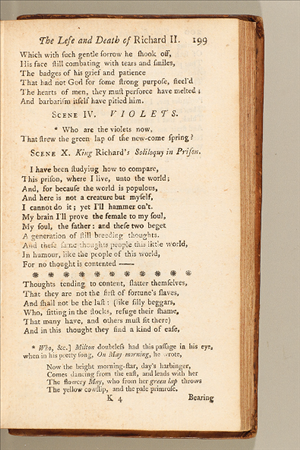 The Life and Death of Richard II. 199
Which with ſuch gentle ſorrow he ſhook off,
His face ſtill combating with tears and ſmiles,
The badges of his grief and patience
That had not God for ſome ſtrong purpoſe, ſteel'd
The hearts of men, they muſt perforce have melted;
And barbariſm itſelf have pitied him.
SCENE IV. VIOLETS.
* Who are the violets now,
That ſtrew the green lap of the new-come ſpring?
SCENE X. King Richard's Soliloquy in Priſon.
I have been ſtudying how to compare,
This priſon, where I live, unto the world;
And, for becauſe the world is populous,
And here is not a creature but myſelf,
I cannot do it; yet I'll hammer on't.
My brain I'll prove the female to my ſoul,
My ſoul, the father: and theſe two beget
A generation of ſtill breeding thoughts,
And theſe ſame thoughts people this little world,
In humour, like the people of this world,
For no thought is contented ——
* * * * * * * * * *
Thoughts tending to content, flatter themſelves,
That they are not the firſt of fortune's ſlaves,
And ſhall not be the laſt: (like ſilly beggars,
Who, ſitting in the ſtocks, refuge their ſhame,
That many have, and others muſt ſit there)
And in this thought they find a kind of eaſe,
* Who, &c.] Milton doubtleſs had this paſſage in his eye,
when in his pretty ſong, On May morning, he wrote,
Now the bright morning-ſtar, day's harbinger,
Comes dancing from the eaſt, and leads with her
The flow'ry May, who from her green lap throws
The yellow cowſlip, and the pale primroſe.
K 4 Bearing